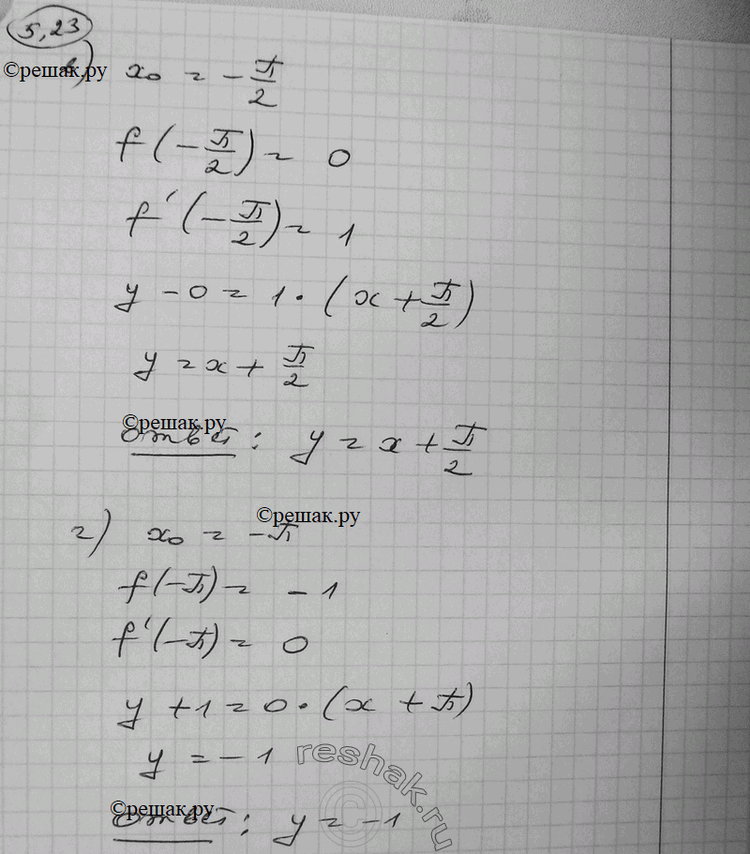 5,23
©решак.ру
в) x₀ = -π/2
f(-π/2) = 0
f'(-π/2) = 1
y - 0 = 1 · (x + π/2)
y = x + π/2
©решак.ру
Ответ: y = x + π/2
©решак.ру
г) x₀ = -π
f(-π) = -1
f'(-π) = 0
y + 1 = 0 · (x + π)
y = -1
reshak.ru
©
©решак.ру
Ответ: y = -1